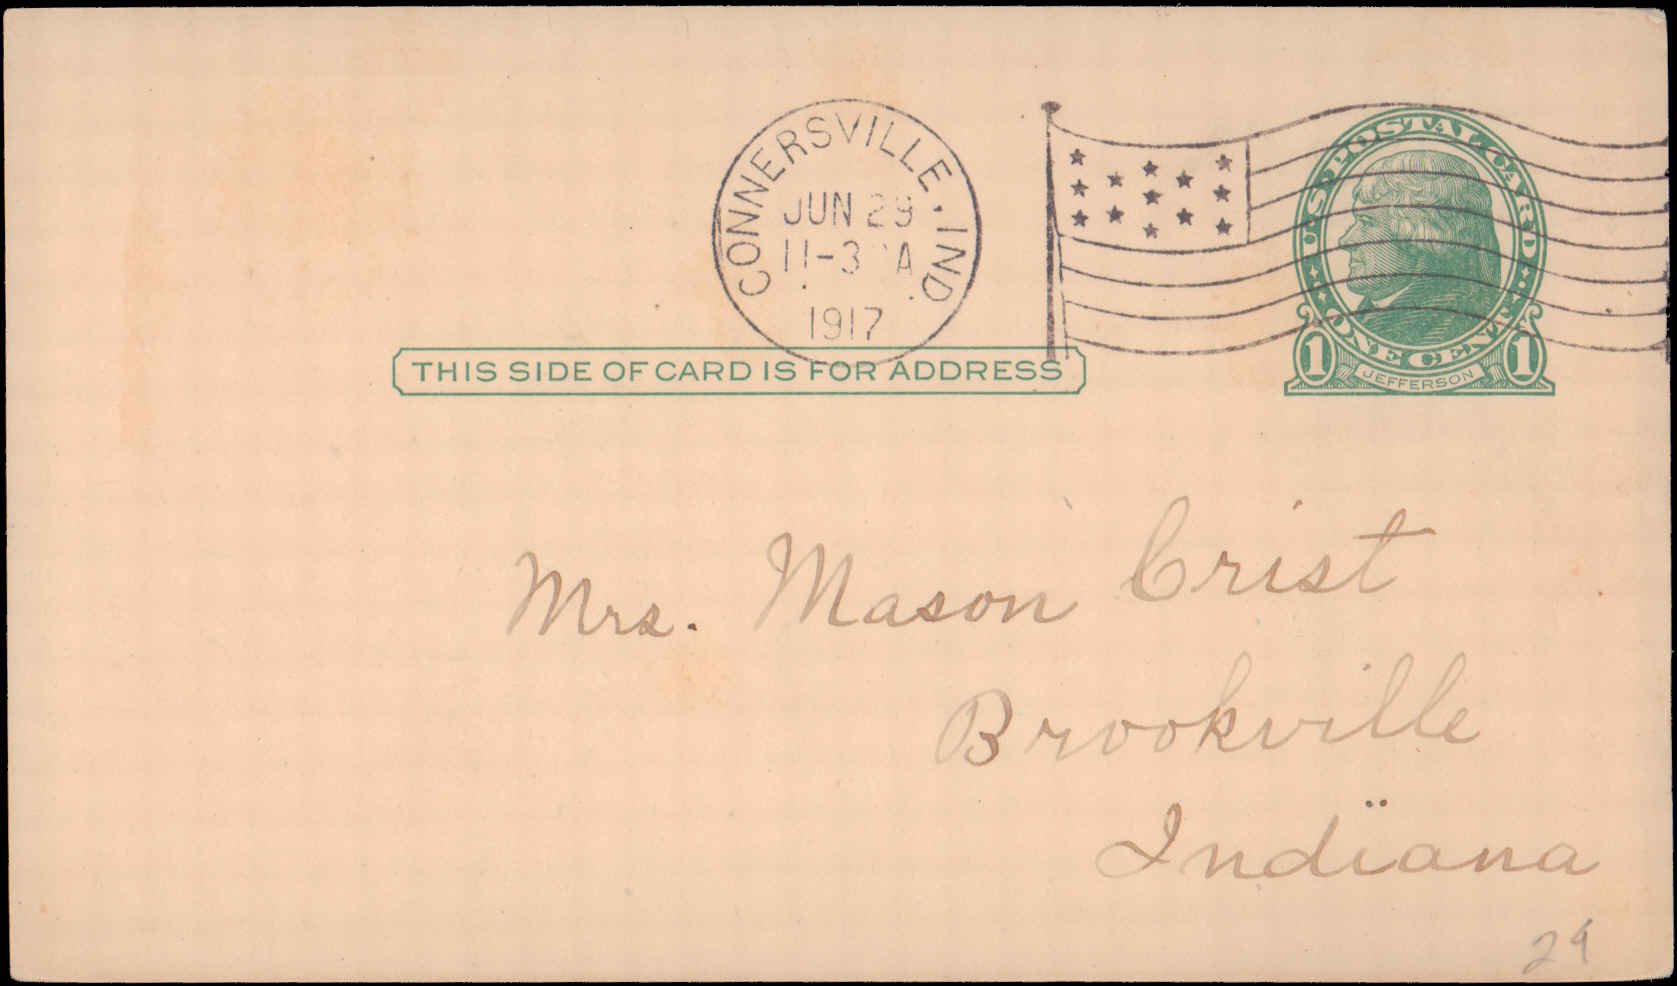 CONNERSVILLE, IND.
JUN 29
11-3 A
1917
U.S. POSTAL CARD
ONE CENT
1 1
JEFFERSON
THIS SIDE OF CARD IS FOR ADDRESS
Mrs. Mason Crist
Brookville
Indiana
29